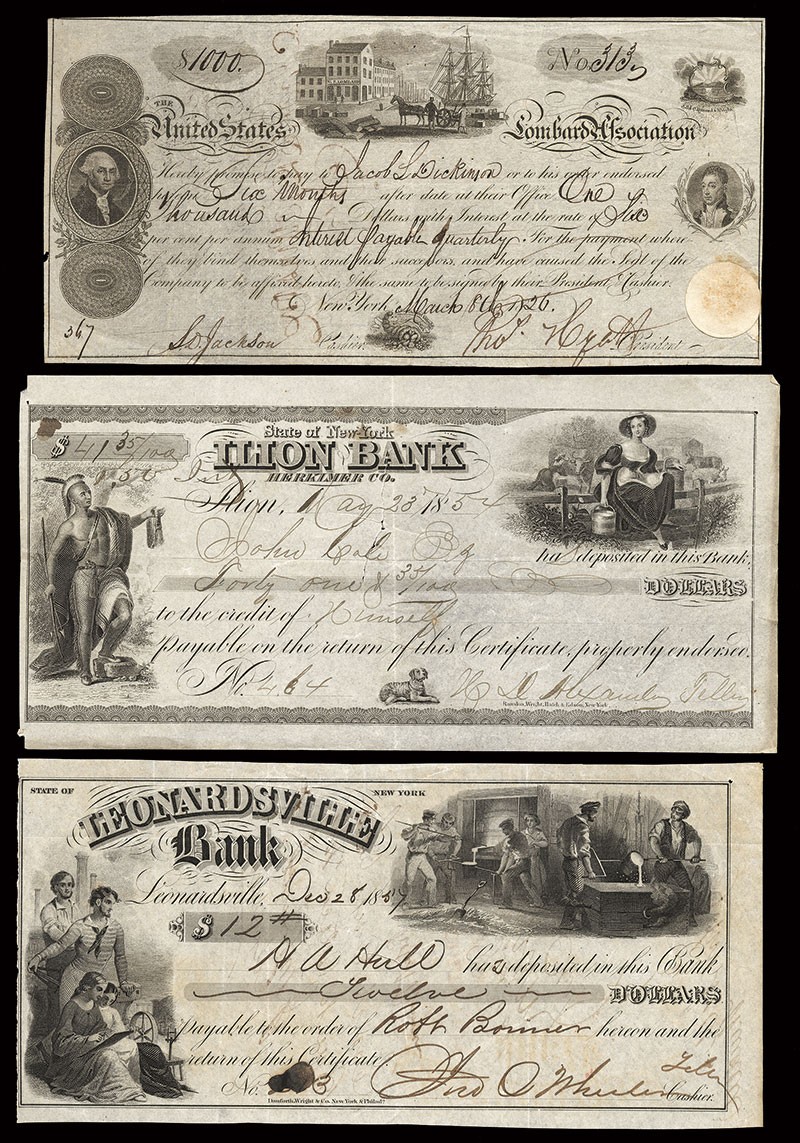 $1000. No. 313
THE
United States Lombard Association
Hereby promise to pay to Jacob S Dickinson or to his order endorsed
Six Months after date at their Office One
Thousand Dollars with Interest at the rate of Six
per cent per annum Interest Payable Quarterly. For the payment where-
of they bind themselves and their successors, and have caused the Seal of the
Company to be affixed hereto & the same to be signed by their President & Cashier.
New York March 8th 1826.
367 S D Jackson Cashier. Tho.s Hyatt President
State of New-York
$ 41 35/100 ILION BANK
HERKIMER CO.
Ilion, May 23 1854
John Cole
has deposited in this Bank,
Forty one & 35/100 DOLLARS
to the credit of Himself
Payable on the return of this Certificate, properly endorsed.
No. 464 H D Alexander Teller
Rawdon, Wright, Hatch & Edson, New York
STATE OF NEW YORK
LEONARDSVILLE
Bank
Leonardsville, Dec 28 1857
$ 12
H A Hull has deposited in this Bank
Twelve DOLLARS
Payable to the order of Robt Bonner hereon and the
return of this Certificate.
No. 3 Wheeler Cashier.
Danforth, Wright & Co. New York & Philada